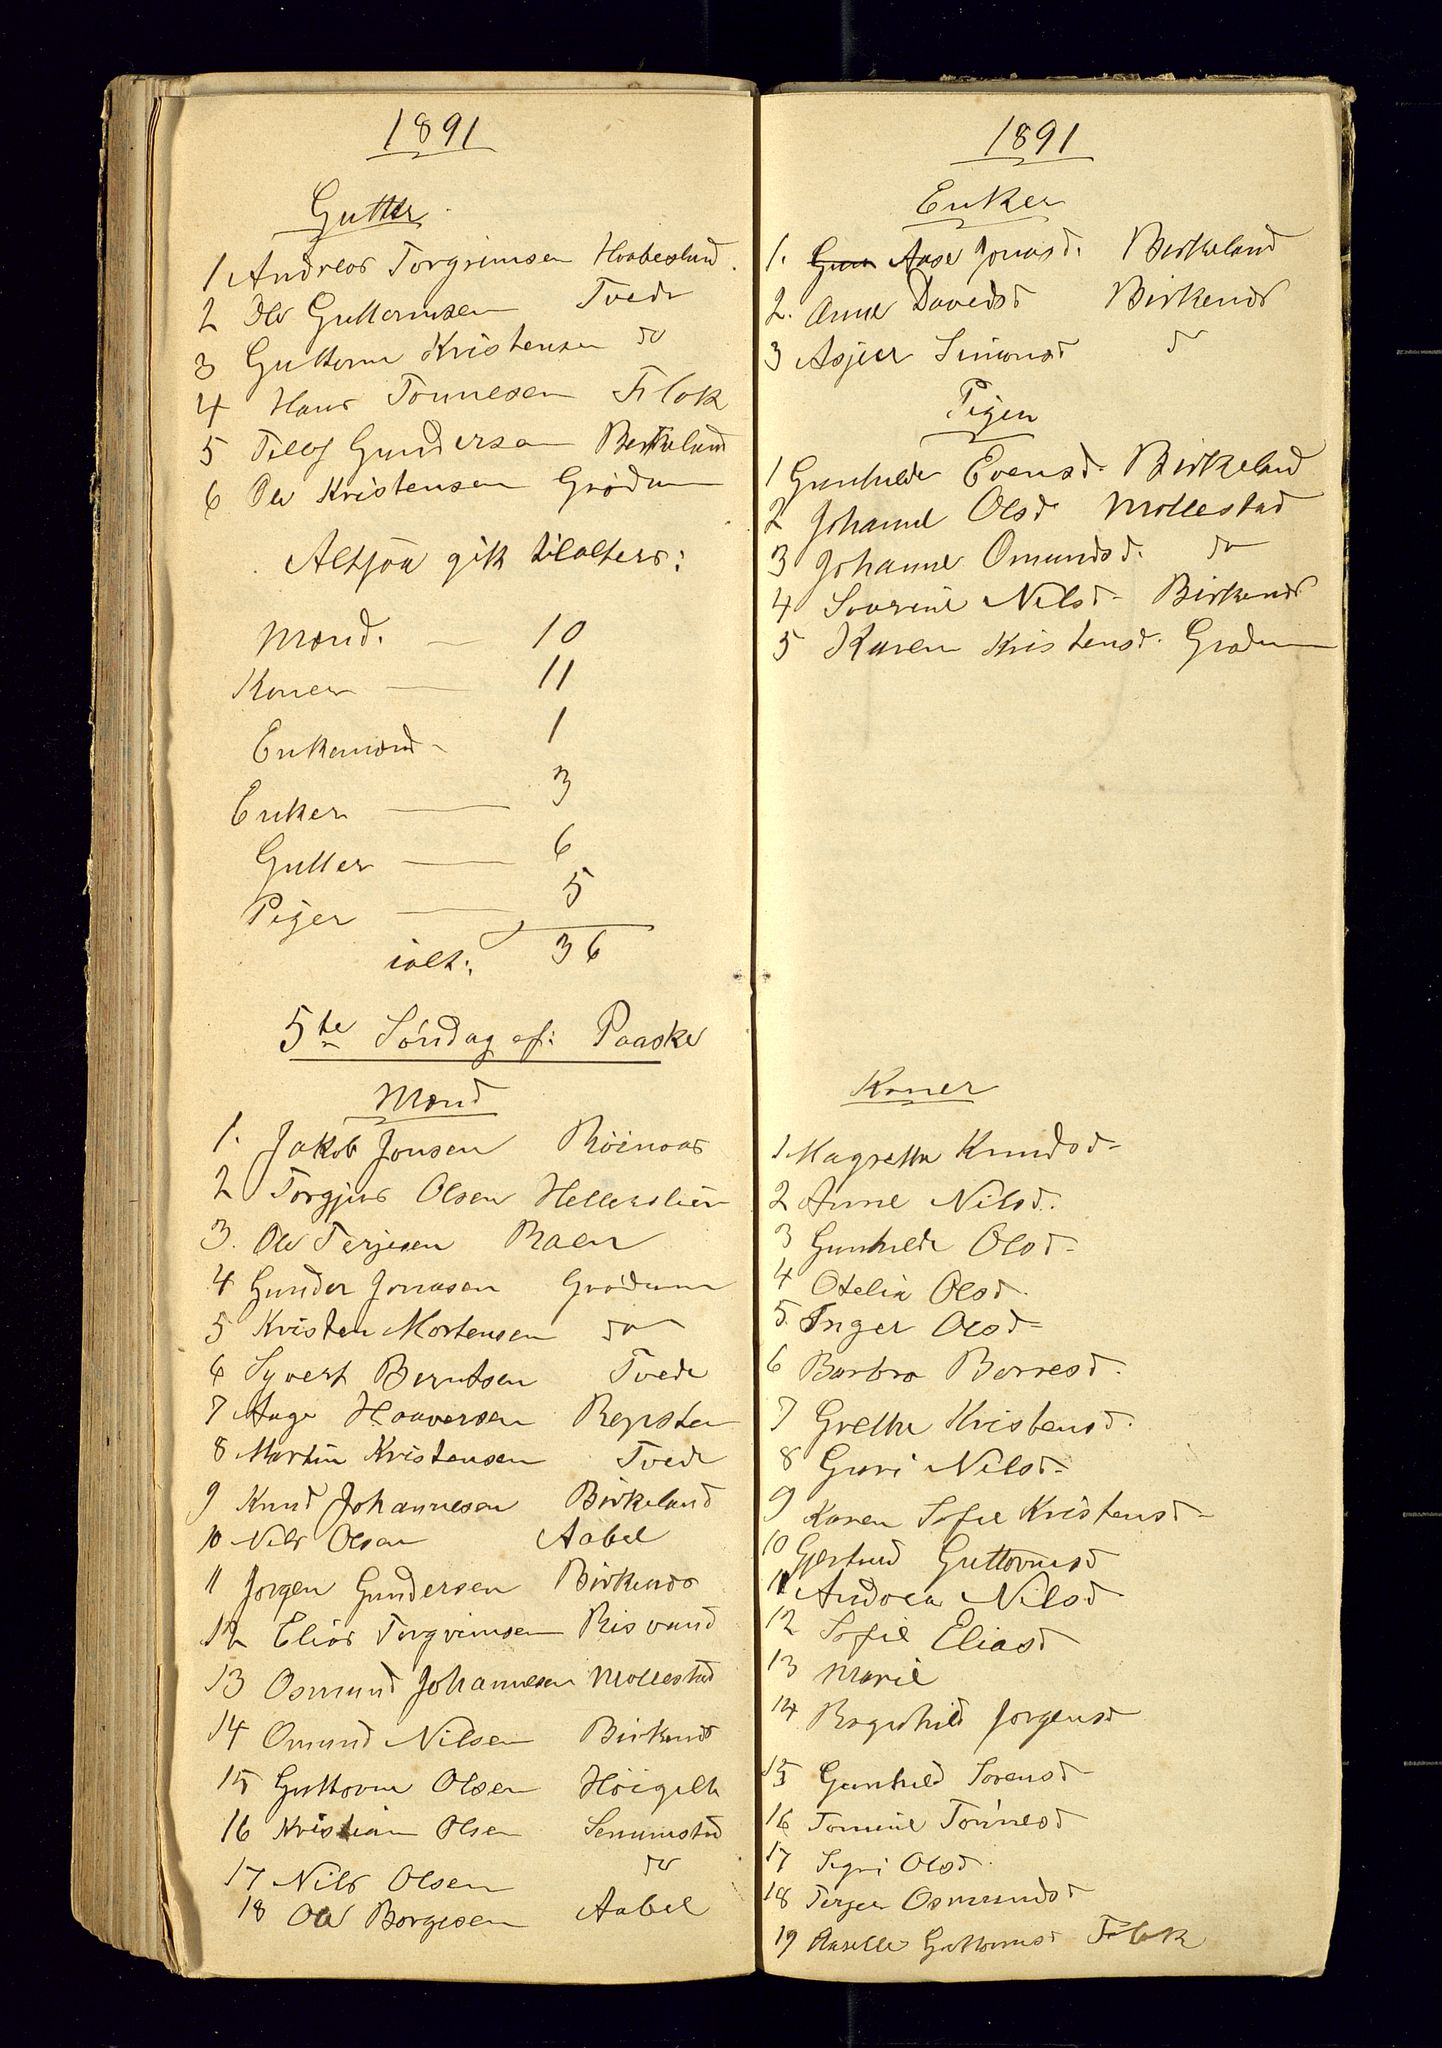 1891
Gutter
1 Andreas Torgrimsen Haabesland
2 Ole Guttormsen Tvede
3 Guttorm Kristensen do
4 Hans Tønnesen Flak
5 Tellef Gundersen Birkeland
6 Ole Kristensen Grødum
Altsaa gik tilalters:
Mænd. — 10
Koner — 11
Enkemænd - 1
Enker — 3
Gutter — 6
Piger — 5
ialt: 36
5te Søndag ef: Paaske
Mænd
1. Jakob Jonsen Röinaas
2 Torgjus Olsen Hellerslien
3. Ole Terjesen Raen
4 Gunder Jonasen Grødum
5 Kristen Mortensen do
6 Syvert Berntsen Tvede
7 Aage Haaversen Repsten
8 Martin Kristensen Tvede
9 Knud Johannesen Birkeland
10 Nils Olsen Aabel
11 Jørgen Gundersen Birkenes
12 Elias Torgrimsen Risvand
13 Osmund Johannesen Mollestad
14 Omund Nilsen Birkenes
15 Guttorm Olsen Höigilt
16 Kristian Olsen Senumstad
17 Nils Olsen do
18 Ole Børgesen Aabel
1891
Enker
1. Aase Jonasd. Birkeland
2. Anne Davidsd Birkenes
3 Asjer Simonsd do
Piger
1 Gunhilde Evensd. Birkeland
2 Johanne Olsd. Mollestad
3 Johanne Omundsd. do
4 Severine Nilsd- Birkenes
5 Karen Kristensd. Grødum
Koner
1. Magrethe Knudsd-
2 Anne Nilsd.
3 Gunhilde Olsd-
4 Otelia Olsd.
5. Inger Olsd-
6 Barbro Børresd.
7 Grethe Kristensd.
8 Guri Nilsd-
9 Karen Sofie Kristensd-
10 Gjertrud Guttormsd
11 Andrea Nilsd
12 Sofie Eliasd
13 Marie
14 Ragnhild Jørgensd
15 Gunhild Sørensd
16 Tomine Tönnesd
17 Signi Olsd.
18 Terjer Osmundsd
19 Guttormsd Flak